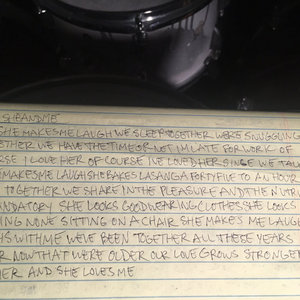 SHEANDME
SHE MAKES ME LAUGH WE SLEEP TOGETHER WERE SNUGGLING
ETHER WE HAVE THE TIME OR NOT IM LATE FOR WORK OF
RSE I LOVE HER OF COURSE IVE LOVED HER SINCE WE TAL
MAKES ME LAUGH SHE BAKES LASANGA FORTY FIVE TO AN HOUR
TOGETHER WE SHARE IN THE PLEASURE AND THE NUTRI
ANDATORY SHE LOOKS GOOD WEARING CLOTHES SHE LOOKS
ING NONE SITTING ON A CHAIR SHE MAKES ME LAUG
HS WITH ME WEVE BEEN TOGETHER ALL THESE YEARS
R NOW THAT WERE OLDER OUR LOVE GROWS STRONGER
HER AND SHE LOVES ME